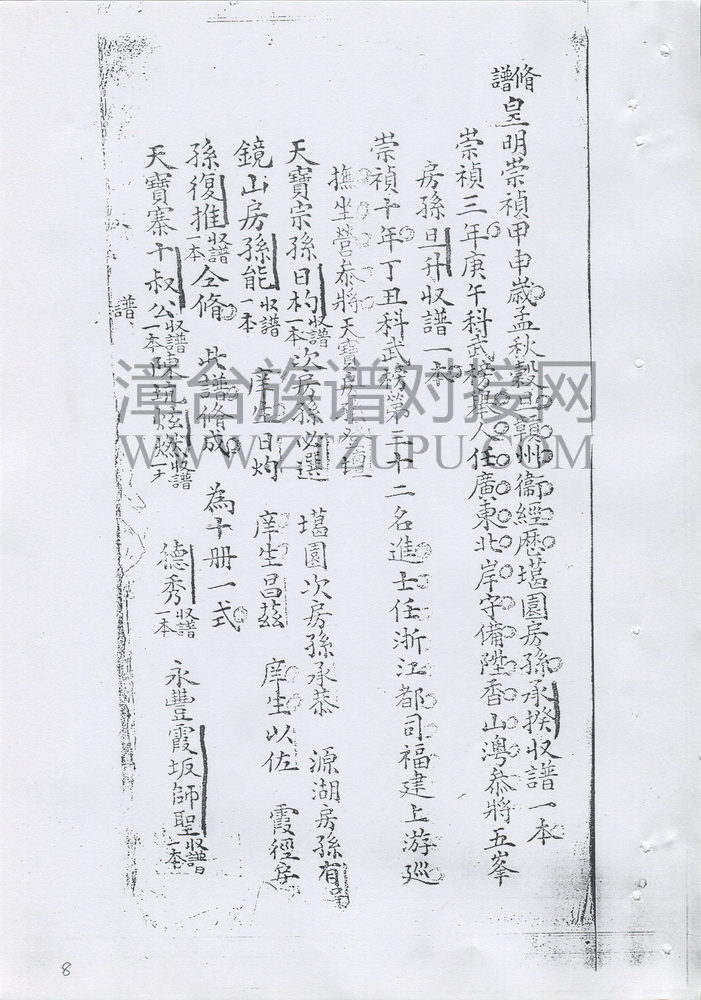 脩譜
皇明崇禎甲申歲孟秋穀旦贛州衞經歷墈園房孫承揆収譜一本
崇禎三年庚午科武榜舉人任廣東北岸守備陞香山灣叅將五峯
房孫旦升収譜一本
崇禎十年丁丑科武榜第三十二名進士任浙江都司福建上游廵
撫坐營叅將天寶房孫
天寶宗孫日杓収譜一本 次房孫必選 墈園次房孫承恭 源湖房孫有
鏡山房孫能収譜一本 庠生日灼 庠生昌茲 庠生以佐 霞徑房
孫復推収譜一本 仝脩 此譜脩成 為十册一式
天寶寨十叔公収譜一本 陳坑炫然収譜一 德秀収譜一本 永豐霞坂師聖収譜一本
譜
漳台族谱对接网
WWW.ZTZUPU.COM
8